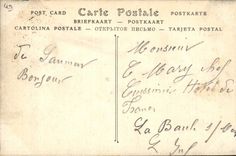 POST CARD Carte Postale POSTKARTE
BRIEFKAART — POSTKAART
CARTOLINA POSTALE — ОТКРЫТОЕ ПИСЬМО — TARJETA POSTAL
de Saumur
Bonjour
Monsieur
Mary chef
Hotel de
France
La Baule s/Mer
L. Inf